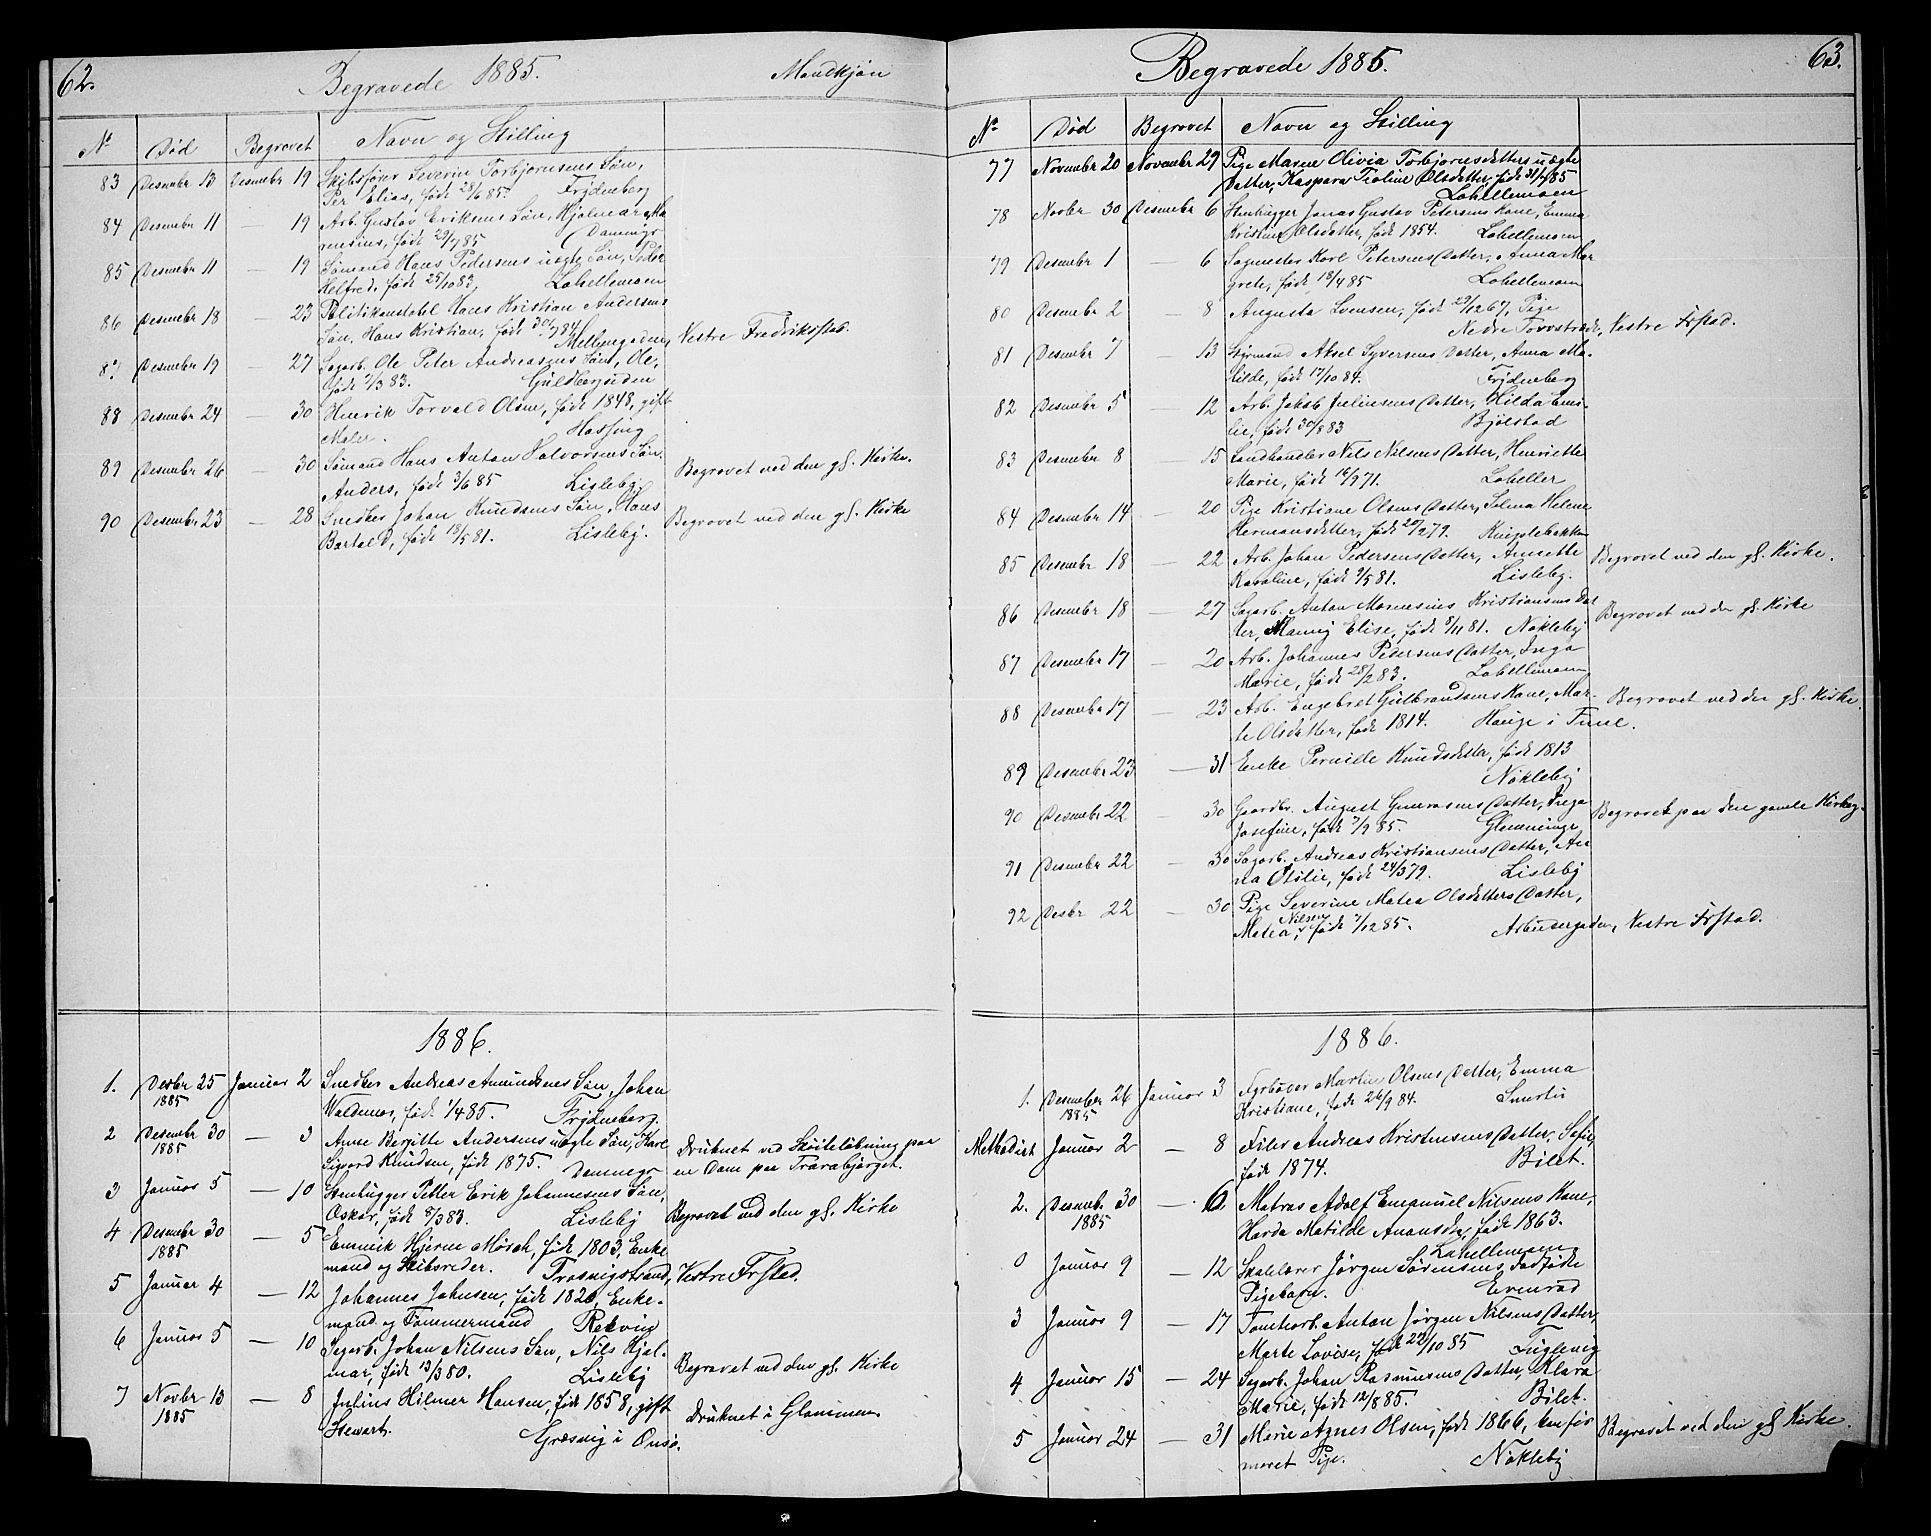 62.
Begravede 1885.
Mandkjøn
No Død Begravet Navn og Stilling
83 Desember 13 Desember 19 Skibsfører Severin Torbjørnsens Søn,
Per Elias, født 28/6 85. Frydenberg
84 Desember 11 — 19 Arb. Gustav Eriksens Søn, Hjalmar Ma-
rensius, født 29/7 85 Damnegs
85 Desember 11 — 19 Sømand Hans Pedersens uægte Søn, Peder
Helfred, født 25/10 83. Lahellemoen
86 Desember 18 — 23 Politikonstabel Hans Kristian Andersens
Søn, Hans Kristian, født 30/7 84. Mellemgaden, Vestre Fredrikstad.
87 Desember 19 — 27 Sagarb. Ole Peter Andreasens Søn, Ole,
født 7/3 83. Guldbergsiden
88 Desember 24 — 30 Henrik Torvald Olsen, født 1848, gift
Maler. Hassing
89 Desember 26 — 30 Sømand Hans Anton Halvorsens Søn
Anders, født 3/6 85 Lisleby. Begravet ved den gl. Kirke.
90 Desember 23 — 28 Snedker Johan Knudsens Søn, Hans
Bartold, født 18/5 81. Lisleby. Begravet ved den gl. Kirke
1886.
1. Desbr 25 Januar 2 Snedker Andreas Amundsens Søn, Johan
1885 Waldemar, født 1/4 85. Frydenberg.
2 Desember 30 — 3 Anne Bergitte Andersens uægte Søn, Karl
1885 Sigvard Knudsen, født 1875. Damnegs
Druknet ved Skøiteløbning paa
en Dam paa Trarabjerget.
3 Januar 5 — 10 Stenhugger Petter Erik Johannesens Søn,
Oskar, født 8/3 83. Lisleby Begravet ved den gl. Kirke
4 Desember 30 — 5 Emmik Hjerne Mørch, født 1803, Enke-
1885 mand og Skibsreder. Trosvigstrand, Vestre Frstad.
5 Januar 4 — 12 Johannes Johnsen, født 1820, Enke-
mand og Tømmermand Rekvin
6 Januar 5 — 10 Sagarb. Johan Nilsens Søn, Nils Hjal-
mar, født 13/3 80. Lisleby Begravet ved den gl. Kirke
7 Novbr 13 — 8 Julius Hilmer Hansen, født 1858, gift
1885 Stewart. Græsvig i Onsø. Druknet i Glommen
63.
Begravede 1885.
No Død Begravet Navn og Stilling
77 November 20 November 29 Pige Maren Olivia Torbjørnsdatters uægte
Datter, Kaspara Teoline Olsdatter, født 31/7 85
Lahellemoen
78 Novbr 30 Desember 6 Stenhugger Jonas Gustav Petersens Kone, Emma
Kristine Olsdatter, født 1854. Lahellemoen
79 Desember 1 — 6 Sagmester Karl Petersens Datter, Anna Mar
grete, født 18/4 85. Lahellemoen
80 Desember 2 — 8 Augusta Svensen, født 29/12 67, Pige
Nedre Torvstræde, Vestre Frstad.
81 Desember 7 — 13 Styrmand Aksel Syversens Datter, Anna Ma-
tilde, født 17/10 84. Frydenberg
82 Desember 5 — 12 Arb. Jakob Juliusens Datter, Hilda Emi-
lie, født 30/8 83 Bjølstad
83 Desember 8 15 Landhandler Nils Nilsens Datter, Henriette
Marie, født 16/9 71. Laheller
84 Desember 14 — 20 Pige Kristiane Olsens Datter, Selma Helene
Hermansdatter, født 29/2 79. Kniplebakken
85 Desember 18 — 22 Arb. Johan Pedersens Datter, Annette
Karoline, født 9/5 81. Lisleby. Begravet ved den gl. Kirke.
86 Desember 18 — 27 Sagarb. Anton Marensius Kristiansens Dat
ter, Manny Elise, født 8/11 81. Nøkleby Begravet ved den gl. Kirke
87 Desember 17 — 20 Arb. Johannes Pedersens Datter, Inga
Marie, født 28/2 83. Lahellemoen
88 Desember 17 — 23 Arb. Engebret Gulbrandsens Kone, Mar-
te Olsdatter, født 1814. Hauge i Tune. Begravet ved den gl. Kirke.
89 Desember 23 — 31 Enke Pernille Knudsdatter, født 1813
Nøkleby
90 Desember 22 — 30 Gaardbr. August Gunerusens Datter, Inga
Josefine, født 7/9 85. Glemminge Begravet paa den gamle Kirkeg.
91 Desember 22 — 30 Sagarb. Andreas Kristiansens Datter, An
na Otilie, født 24/3 79. Lisleby
92 Desbr 22 — 30 Pige Severine Matea Olsdatters Datter,
Matea Nilsen, født 7/12 85. Arbeidergaden, Vestre Frstad.
1886.
1. Desember 26 Januar 3 Fyrbøder Martin Olsens Datter, Emma
1885 Kristiane, født 26/9 84. Smertu
Methodist Januar 2 — 8 Filer Andreas Kristensens Datter, Sofie,
født 1874. Bilet.
2. Desemb. 30 — 6. Matros Adolf Emanuel Nilsens Kone,
1885 Harda Matilde Anansdtr, født 1863.
Lahellemoen
0 Januar 9 — 12 Skolelærer Jørgen Sørensens dødfødte
Pigebarn. Evenrød
3 Januar 9 — 17 Tomtearb. Anton Jørgen Nilsens Datter,
Marte Lovise, født 22/10 85 Fuglevig
4 Januar 15 — 24 Sagarb. Johan Rasmusens Datter, Klara
Marie, født 12/8 85. Bilet.
5 Januar 24 — 31 Marie Agnes Olsen, født 1866, konfir
meret Pige. Nøkleby Begravet ved den gl. Kirke.